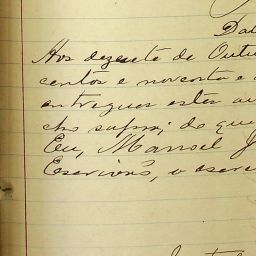 Dat
Aos dezesete de Outu
centos e noventa e
entreguei estes au
cho supra; do que
Eu, Manoel J
Escrivão, o escre